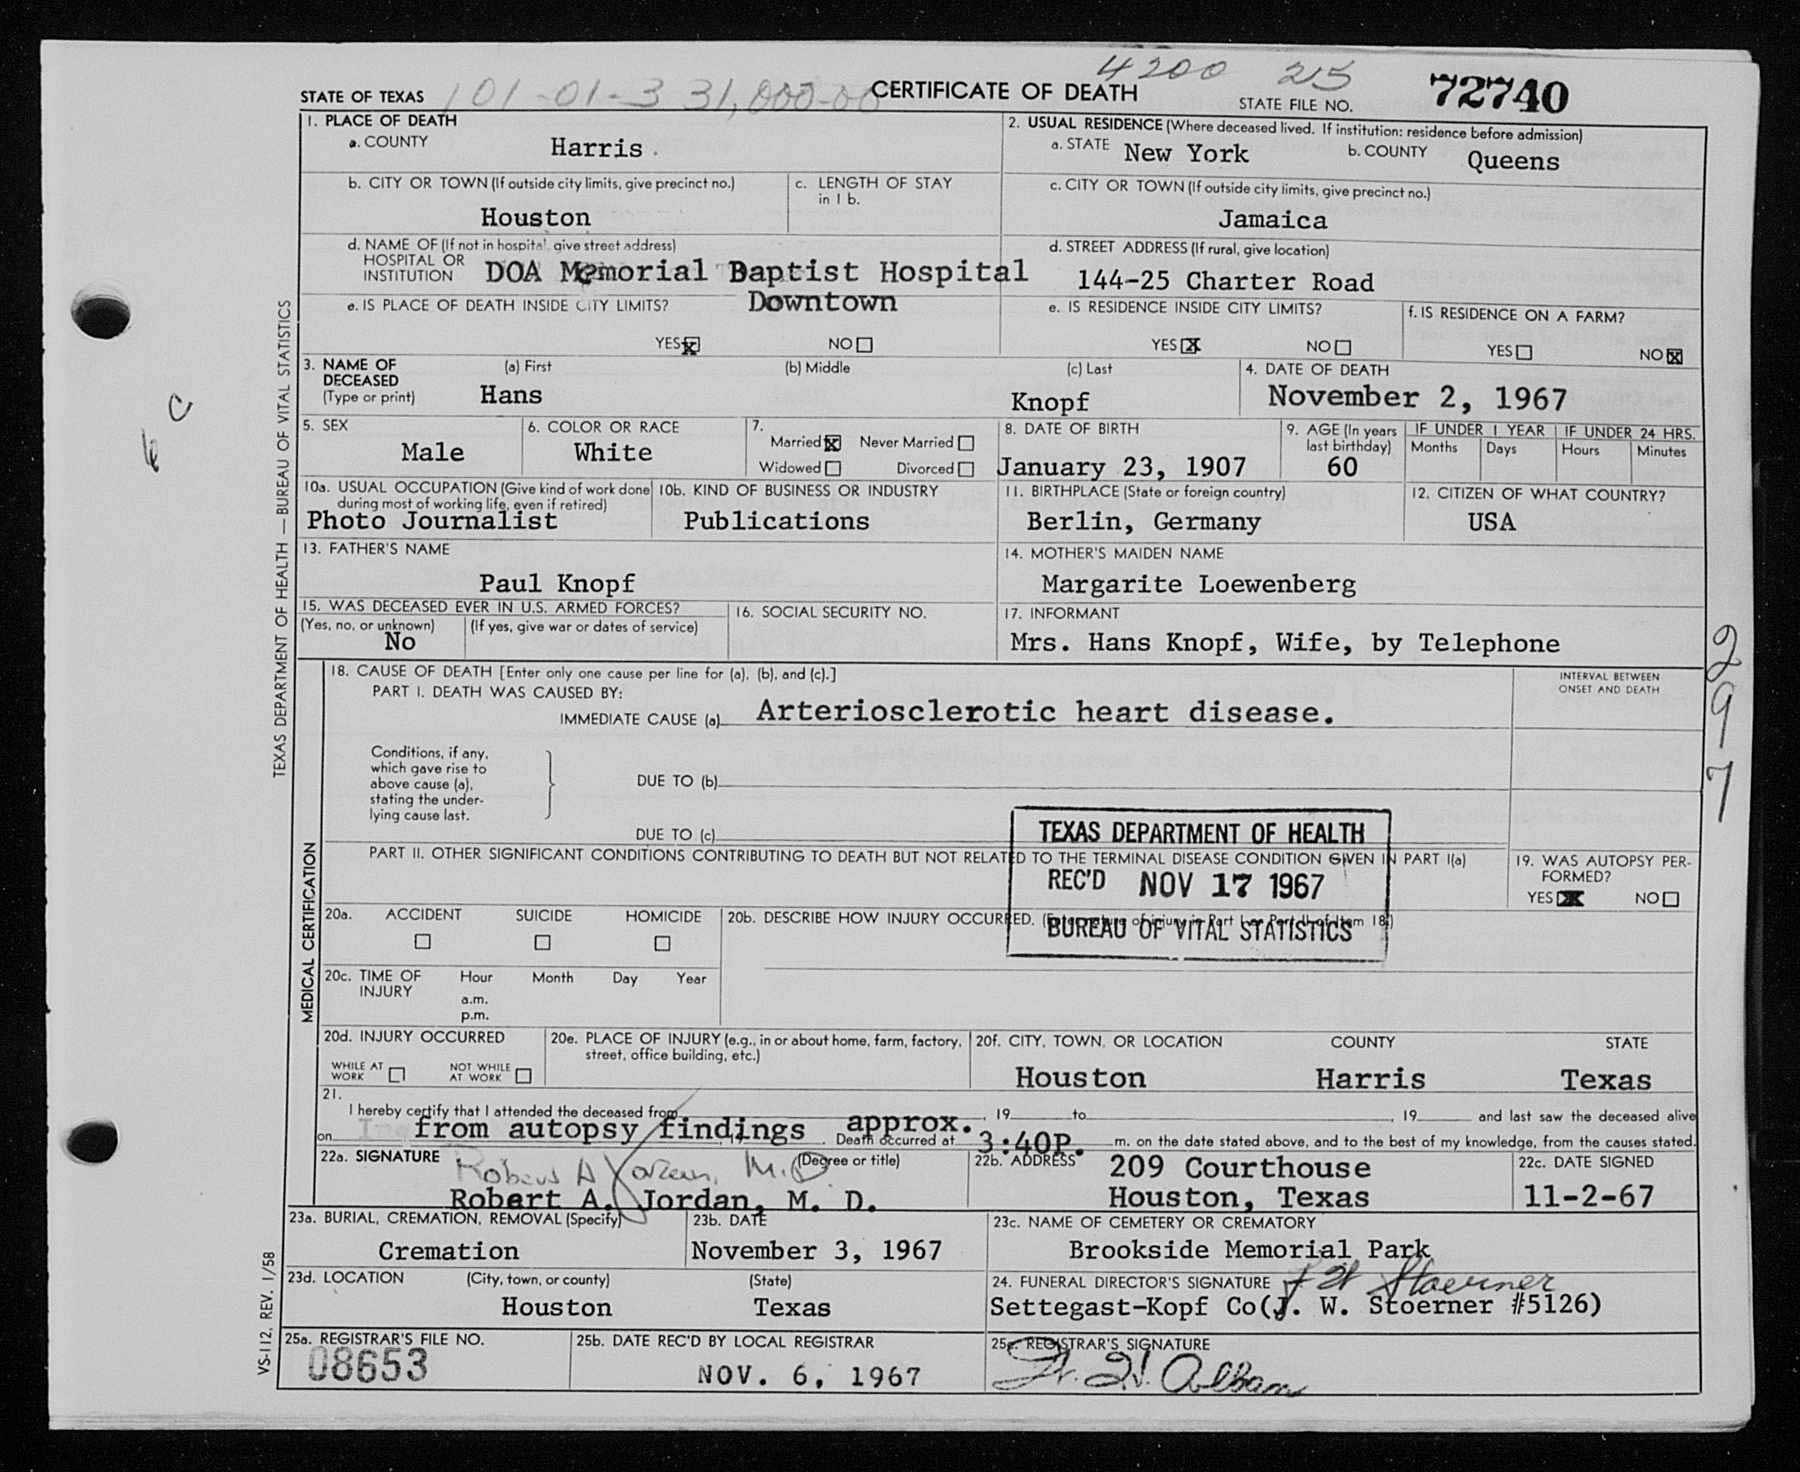 4200 215
STATE OF TEXAS 101-01-3 31,000-00 CERTIFICATE OF DEATH STATE FILE NO. 72740
1. PLACE OF DEATH
a. COUNTY Harris
2. USUAL RESIDENCE (Where deceased lived. If institution: residence before admission)
a. STATE New York b. COUNTY Queens
b. CITY OR TOWN (If outside city limits, give precinct no.)
Houston
c. LENGTH OF STAY
in 1 b.
c. CITY OR TOWN (If outside city limits, give precinct no.)
Jamaica
d. NAME OF (If not in hospital, give street address)
HOSPITAL OR
INSTITUTION DOA Memorial Baptist Hospital
Downtown
d. STREET ADDRESS (If rural, give location)
144-25 Charter Road
e. IS PLACE OF DEATH INSIDE CITY LIMITS?
YES X NO
e. IS RESIDENCE INSIDE CITY LIMITS?
YES X NO
f. IS RESIDENCE ON A FARM?
YES NO X
3. NAME OF
DECEASED
(Type or print)
(a) First (b) Middle (c) Last
Hans Knopf
4. DATE OF DEATH
November 2, 1967
5. SEX
Male
6. COLOR OR RACE
White
7.
Married X Never Married
Widowed Divorced
8. DATE OF BIRTH
January 23, 1907
9. AGE (In years
last birthday)
60
IF UNDER 1 YEAR IF UNDER 24 HRS.
Months Days Hours Minutes
10a. USUAL OCCUPATION (Give kind of work done
during most of working life, even if retired)
Photo Journalist
10b. KIND OF BUSINESS OR INDUSTRY
Publications
11. BIRTHPLACE (State or foreign country)
Berlin, Germany
12. CITIZEN OF WHAT COUNTRY?
USA
13. FATHER'S NAME
Paul Knopf
14. MOTHER'S MAIDEN NAME
Margarite Loewenberg
15. WAS DECEASED EVER IN U.S. ARMED FORCES?
(Yes, no, or unknown) (If yes, give war or dates of service)
No
16. SOCIAL SECURITY NO.
17. INFORMANT
Mrs. Hans Knopf, Wife, by Telephone
18. CAUSE OF DEATH [Enter only one cause per line for (a), (b), and (c).]
PART I. DEATH WAS CAUSED BY:
IMMEDIATE CAUSE (a) Arteriosclerotic heart disease.
INTERVAL BETWEEN
ONSET AND DEATH
Conditions, if any,
which gave rise to
above cause (a),
stating the under-
lying cause last.
DUE TO (b)
DUE TO (c)
PART II. OTHER SIGNIFICANT CONDITIONS CONTRIBUTING TO DEATH BUT NOT RELATED TO THE TERMINAL DISEASE CONDITION GIVEN IN PART I(a)
TEXAS DEPARTMENT OF HEALTH
REC'D NOV 17 1967
BUREAU OF VITAL STATISTICS
19. WAS AUTOPSY PER-
FORMED?
YES X NO
20a. ACCIDENT SUICIDE HOMICIDE
20b. DESCRIBE HOW INJURY OCCURRED. (Enter nature of injury in Part I or Part II of Item 18.)
20c. TIME OF
INJURY
Hour Month Day Year
a.m.
p.m.
20d. INJURY OCCURRED
WHILE AT
WORK
NOT WHILE
AT WORK
20e. PLACE OF INJURY (e.g., in or about home, farm, factory,
street, office building, etc.)
20f. CITY, TOWN, OR LOCATION COUNTY STATE
Houston Harris Texas
21.
I hereby certify that I attended the deceased from , 19 to , 19 and last saw the deceased alive
on from autopsy findings , 19 . Death occurred at approx. 3:40P. m. on the date stated above, and to the best of my knowledge, from the causes stated.
22a. SIGNATURE (Degree or title)
Robert A Jordan, M.D
Robert A. Jordan, M. D.
22b. ADDRESS 209 Courthouse
Houston, Texas
22c. DATE SIGNED
11-2-67
23a. BURIAL, CREMATION, REMOVAL (Specify)
Cremation
23b. DATE
November 3, 1967
23c. NAME OF CEMETERY OR CREMATORY
Brookside Memorial Park
23d. LOCATION (City, town, or county) (State)
Houston Texas
24. FUNERAL DIRECTOR'S SIGNATURE J W Stoerner
Settegast-Kopf Co(J. W. Stoerner #5126)
25a. REGISTRAR'S FILE NO.
08653
25b. DATE REC'D BY LOCAL REGISTRAR
NOV. 6, 1967
25c. REGISTRAR'S SIGNATURE
TEXAS DEPARTMENT OF HEALTH — BUREAU OF VITAL STATISTICS
MEDICAL CERTIFICATION
VS-112, REV. 1/58
297